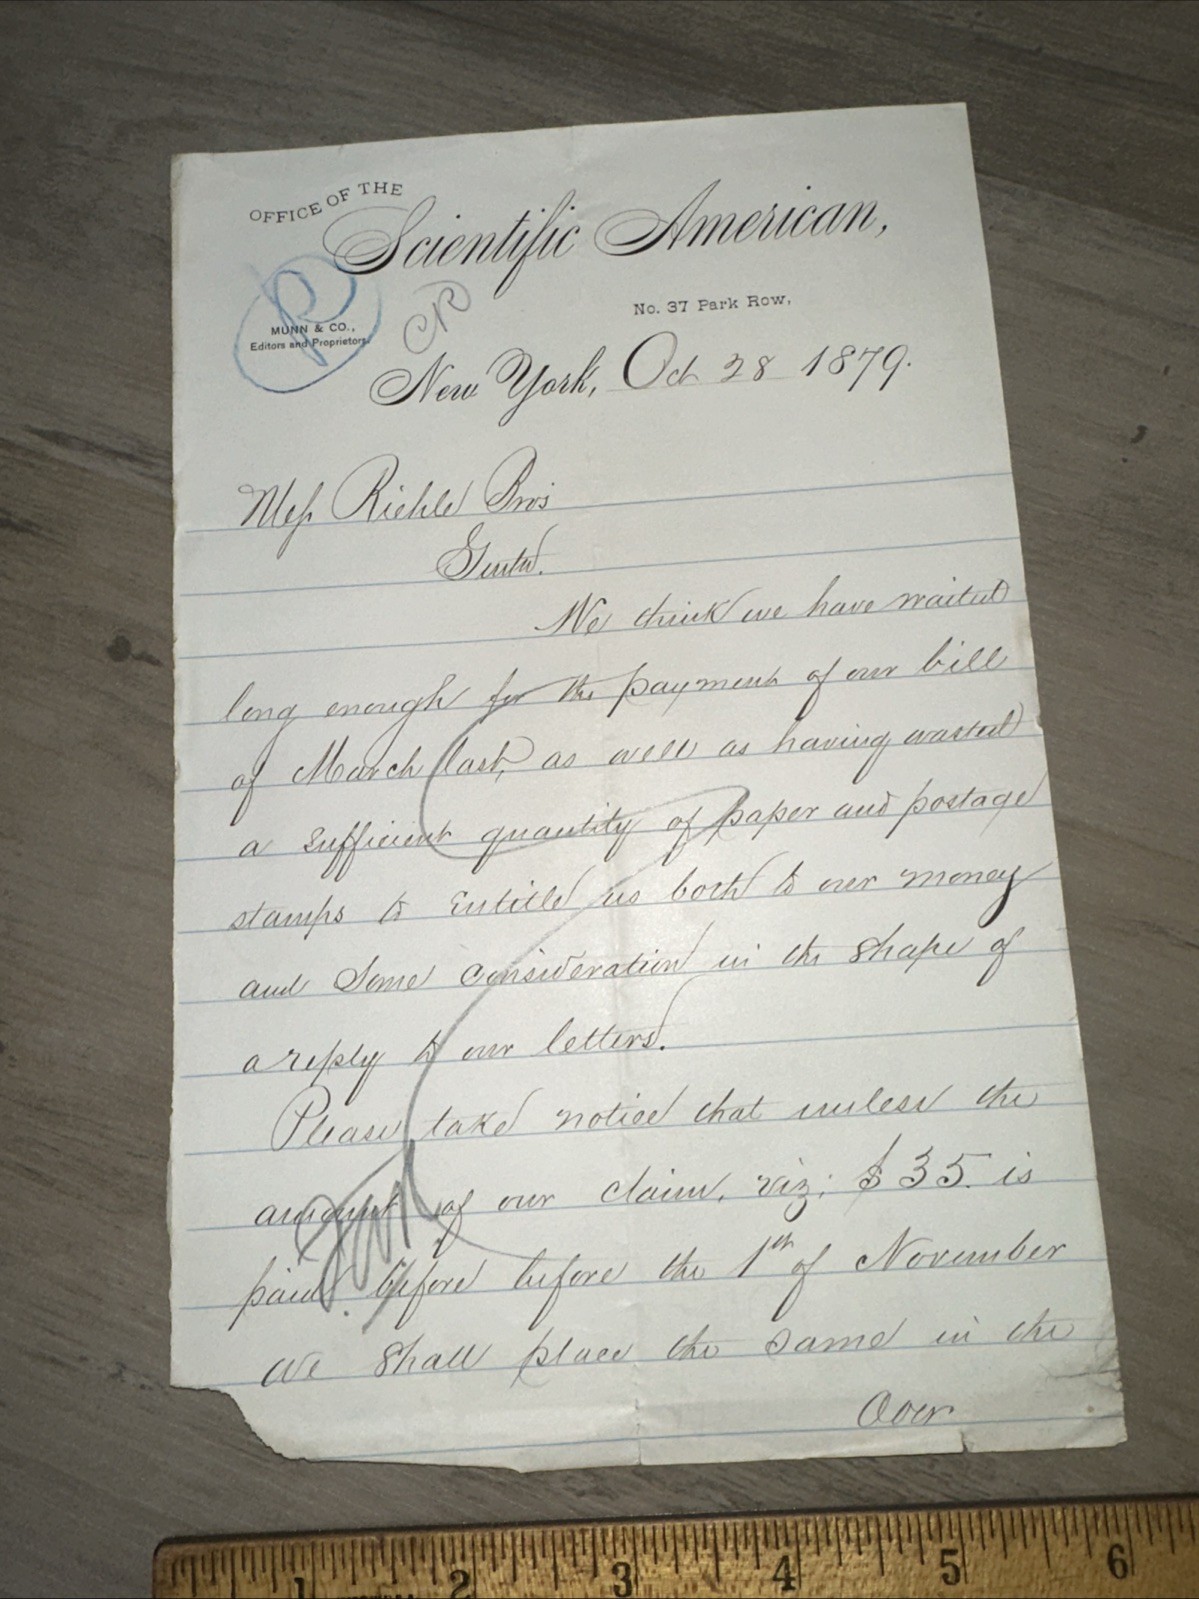 OFFICE OF THE
Scientific American,
No. 37 Park Row,
MUNN & CO.,
Editors and Proprietors.
R
CR
New York, Oct 28 1879.
Mess Riehle Bros
Gents.
We think we have waited
long enough for the payment of our bill
of March last, as well as having wasted
a sufficient quantity of paper and postage
stamps to entitle us both to our money
and some consideration in the shape of
a reply to our letters.
Please take notice that unless the
amount of our claim, viz; $35. is
paid before before the 1th of November
we shall place the same in the
Over
1 2 3 4 5 6